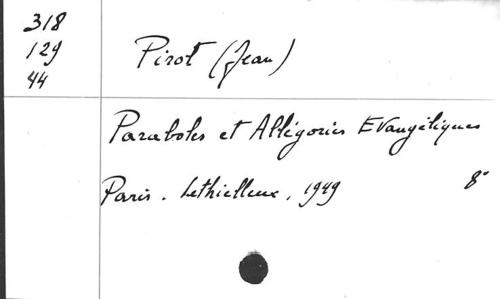 318
129
44
Pirot (Jean)
Paraboles et Allégories Evangéliques
Paris. Lethielleux, 1949 8°